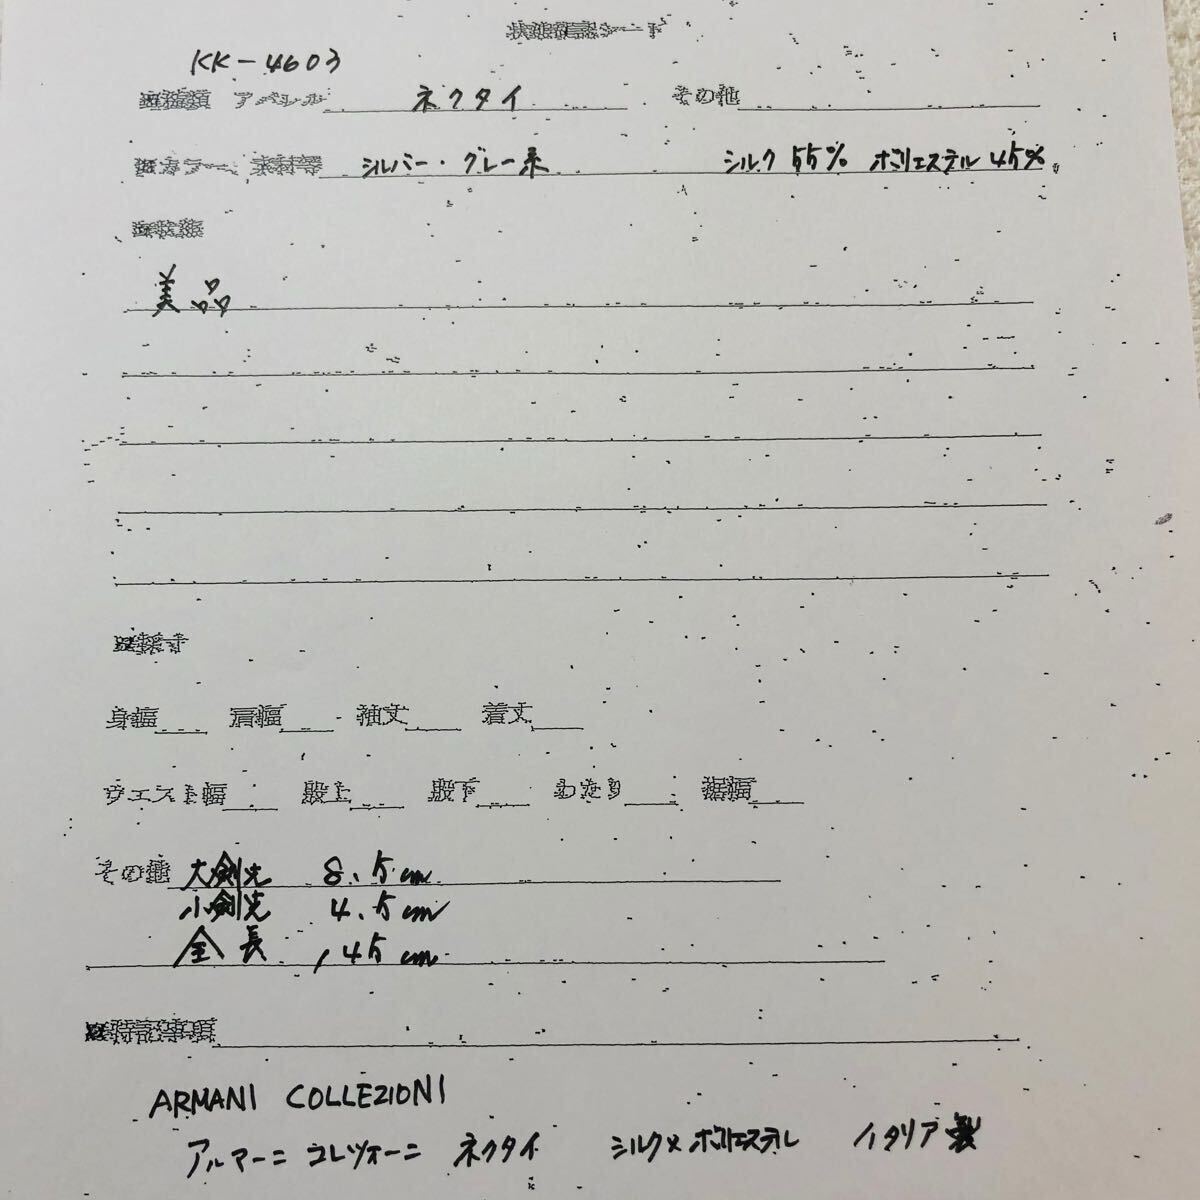 状態確認シート
KK-4603
種類 アパレル ネクタイ その他
カラー、素材等 シルバー・グレー系 シルク 55% ポリエステル 45%
状態
美品
採寸
身幅 肩幅 袖丈 着丈
ウエスト幅 股上 股下 わたり 裾幅
その他 大剣先 8.5cm
小剣先 4.5cm
全長 145cm
特記事項
ARMANI COLLEZIONI
アルマーニ コレツォーニ ネクタイ シルク×ポリエステル イタリア製